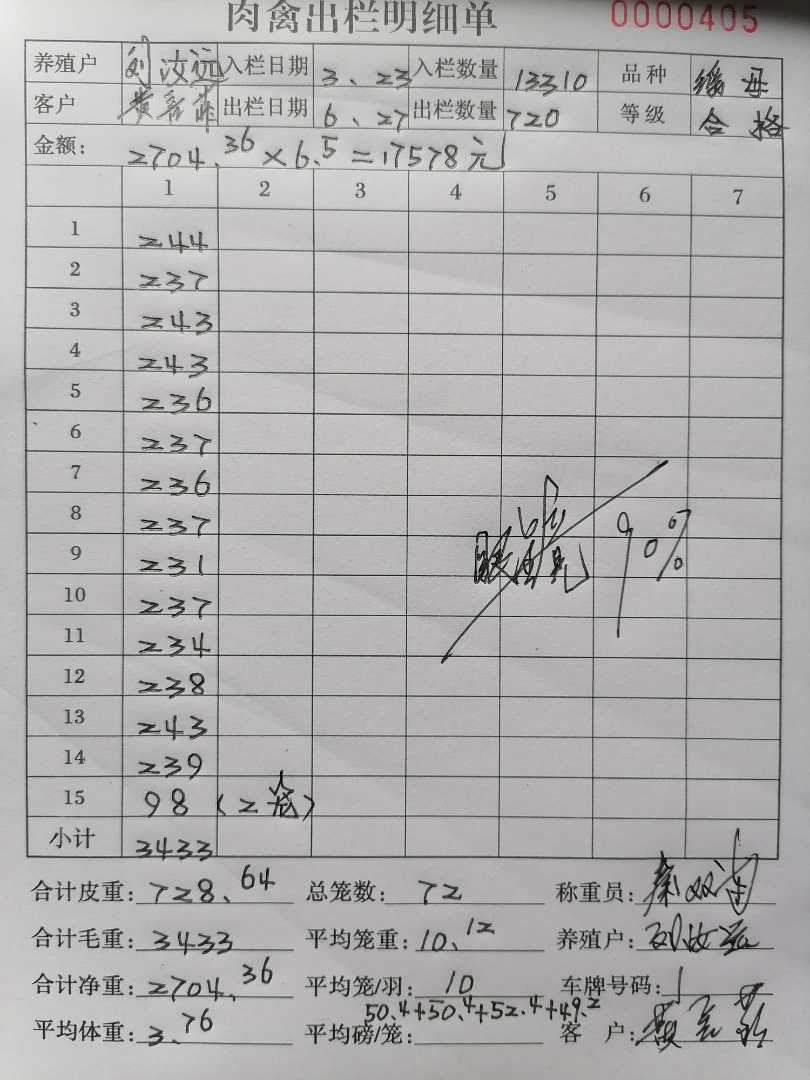 肉禽出栏明细单 0000405
养殖户 刘汝远 入栏日期 3、23 入栏数量 13310 品种
客户 出栏日期 6、27 出栏数量 720 等级 合格
金额: 2704.36×6.5=17578元
1 2 3 4 5 6 7
1 244
2 237
3 243
4 243
5 236
6 237
7 236
8 237
9 231
10 237
11 234
12 238
13 243
14 239
15 98 (2笼)
90%
小计 3433
合计皮重: 728、64 总笼数: 72 称重员:
合计毛重: 3433 平均笼重: 10、12 养殖户:
合计净重: 2704.36 平均笼/羽: 10 车牌号码:
50.4+50.4+52.4+49.2
平均体重: 3、76 平均磅/笼: 客 户: